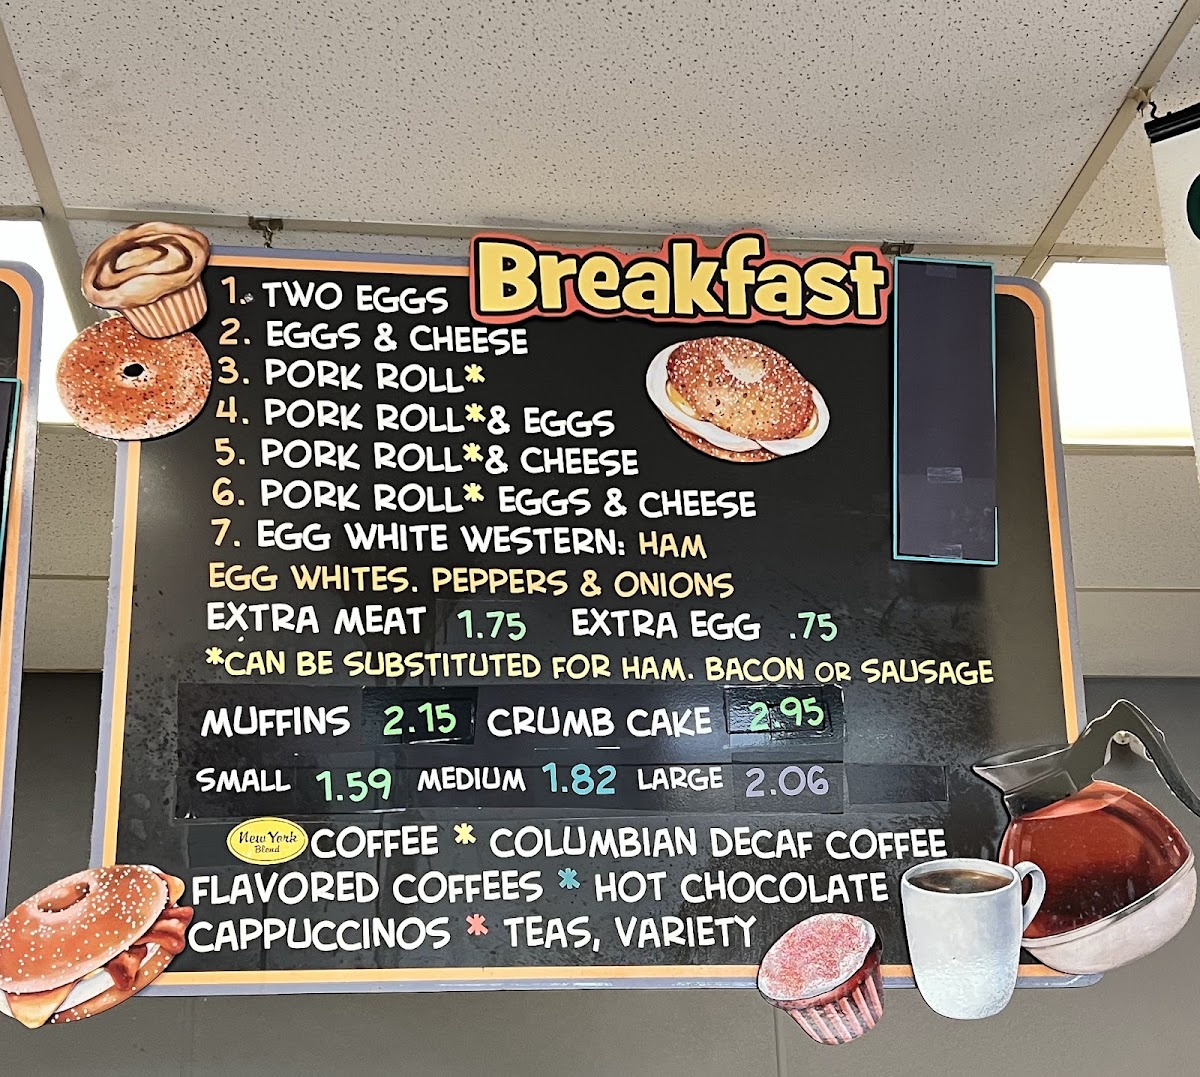 Breakfast
1. TWO EGGS
2. EGGS & CHEESE
3. PORK ROLL*
4. PORK ROLL*& EGGS
5. PORK ROLL*& CHEESE
6. PORK ROLL* EGGS & CHEESE
7. EGG WHITE WESTERN: HAM
EGG WHITES. PEPPERS & ONIONS
EXTRA MEAT 1.75 EXTRA EGG .75
*CAN BE SUBSTITUTED FOR HAM. BACON OR SAUSAGE
MUFFINS 2.15 CRUMB CAKE 2.95
SMALL 1.59 MEDIUM 1.82 LARGE 2.06
New York Blend COFFEE * COLUMBIAN DECAF COFFEE
FLAVORED COFFEES * HOT CHOCOLATE
CAPPUCCINOS * TEAS, VARIETY